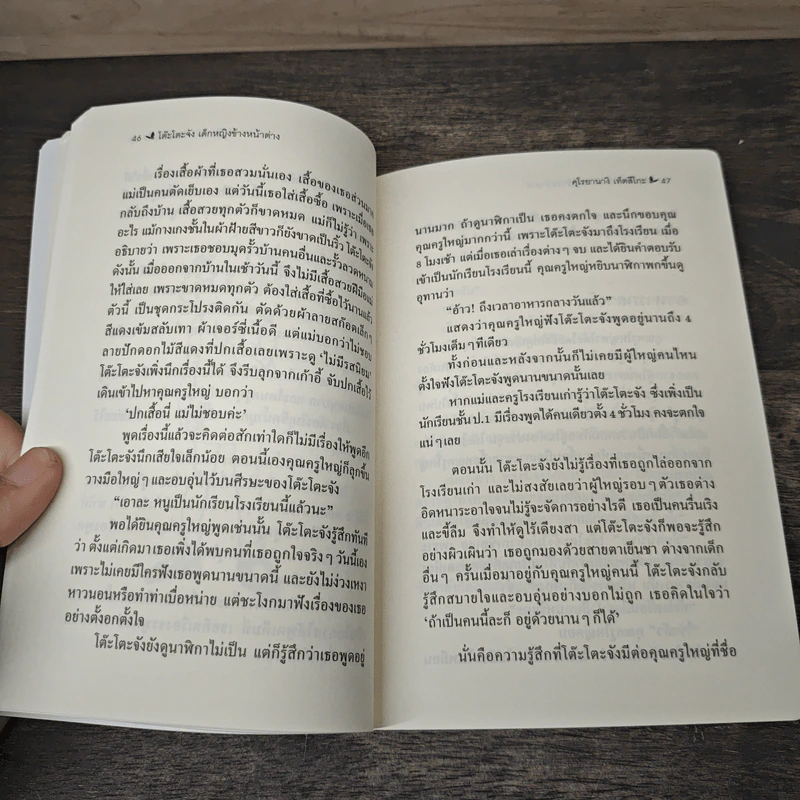 46 โต๊ะโตะจัง เด็กหญิงข้างหน้าต่าง
เรื่องเสื้อผ้าที่เธอสวมนั่นเอง เสื้อของเธอส่วนมาก
แม่เป็นคนตัดเย็บเอง แต่วันนี้เธอใส่เสื้อซื้อ เพราะเมื่อเธอ
กลับถึงบ้าน เสื้อสวยทุกตัวก็ขาดหมด แม่ก็ไม่รู้ว่า เพราะ
อะไร แม้กางเกงชั้นในผ้าฝ้ายสีขาวก็ยังขาดเป็นริ้ว โต๊ะโตะจัง
อธิบายว่า เพราะเธอชอบมุดรั้วบ้านคนอื่นและรั้วลวดหนาม
ดังนั้น เมื่อออกจากบ้านในเช้าวันนี้ จึงไม่มีเสื้อสวยฝีมือแม่
ให้ใส่เลย เพราะขาดหมดทุกตัว ต้องใส่เสื้อที่ซื้อไว้นานแล้ว
ตัวนี้ เป็นชุดกระโปรงติดกัน ตัดด้วยผ้าลายสก๊อตเล็กๆ
สีแดงเข้มสลับเทา ผ้าเจอร์ซี่เนื้อดี แต่แม่บอกว่าไม่ชอบ
ลายปักดอกไม้สีแดงที่ปกเสื้อเลยเพราะดู 'ไม่มีรสนิยม'
โต๊ะโตะจังเพิ่งนึกเรื่องนี้ได้ จึงรีบลุกจากเก้าอี้ จับปกเสื้อไว้
เดินเข้าไปหาคุณครูใหญ่ บอกว่า
'ปกเสื้อนี่ แม่ไม่ชอบค่ะ'
พูดเรื่องนี้แล้วจะคิดต่อสักเท่าใดก็ไม่มีเรื่องให้พูดอีก
โต๊ะโตะจังนึกเสียใจเล็กน้อย ตอนนี้เองคุณครูใหญ่ก็ลุกขึ้น
วางมือใหญ่ๆ และอบอุ่นไว้บนศีรษะของโต๊ะโตะจัง
"เอาละ หนูเป็นนักเรียนโรงเรียนนี้แล้วนะ"
พอได้ยินคุณครูใหญ่พูดเช่นนั้น โต๊ะโตะจังรู้สึกทันที
ว่า ตั้งแต่เกิดมา เธอเพิ่งได้พบคนที่เธอถูกใจจริงๆ วันนี้เอง
เพราะไม่เคยมีใครฟังเธอพูดนานขนาดนี้ และยังไม่ง่วงเหงา
หาวนอนหรือทำท่าเบื่อหน่าย แต่ชะโงกมาฟังเรื่องของเธอ
อย่างตั้งอกตั้งใจ
โต๊ะโตะจังยังดูนาฬิกาไม่เป็น แต่ก็รู้สึกว่าเธอพูดอยู่
คุโรยานางิ เท็ตสึโกะ 47
นานมาก ถ้าดูนาฬิกาเป็น เธอคงตกใจ และนึกขอบคุณ
คุณครูใหญ่มากกว่านี้ เพราะโต๊ะโตะจังมาถึงโรงเรียน เมื่อ
8 โมงเช้า แต่เมื่อเธอเล่าเรื่องต่างๆ จบ และได้ยินคำตอบรับ
เข้าเป็นนักเรียนโรงเรียนนี้ คุณครูใหญ่หยิบนาฬิกาพกขึ้นดู
อุทานว่า
"อ้าว! ถึงเวลาอาหารกลางวันแล้ว"
แสดงว่าคุณครูใหญ่ฟังโต๊ะโตะจังพูดอยู่นานถึง 4
ชั่วโมงเต็มๆ ทีเดียว
ทั้งก่อนและหลังจากนั้นก็ไม่เคยมีผู้ใหญ่คนไหน
ตั้งใจฟังโต๊ะโตะจังพูดนานขนาดนั้นเลย
หากแม่และครูโรงเรียนเก่ารู้ว่าโต๊ะโตะจัง ซึ่งเพิ่งเป็น
นักเรียนชั้น ป.1 มีเรื่องพูดได้คนเดียวตั้ง 4 ชั่วโมง คงจะตกใจ
แน่ๆ เลย
ตอนนั้น โต๊ะโตะจังยังไม่รู้เรื่องที่เธอถูกไล่ออกจาก
โรงเรียนเก่า และไม่สงสัยเลยว่าผู้ใหญ่รอบๆ ตัวเธอต่าง
อิดหนาระอาใจจนไม่รู้จะจัดการอย่างไรดี เธอเป็นคนรื่นเริง
และขี้ลืม จึงทำให้ดูไร้เดียงสา แต่โต๊ะโตะจังก็พอจะรู้สึก
อย่างผิวเผินว่า เธอถูกมองด้วยสายตาเย็นชา ต่างจากเด็ก
อื่นๆ ครั้นเมื่อมาอยู่กับคุณครูใหญ่คนนี้ โต๊ะโตะจังกลับ
รู้สึกสบายใจและอบอุ่นอย่างบอกไม่ถูก เธอคิดในใจว่า
'ถ้าเป็นคนนี้ละก็ อยู่ด้วยนานๆ ก็ได้'
นั่นคือความรู้สึกที่โต๊ะโตะจังมีต่อคุณครูใหญ่ที่ชื่อ